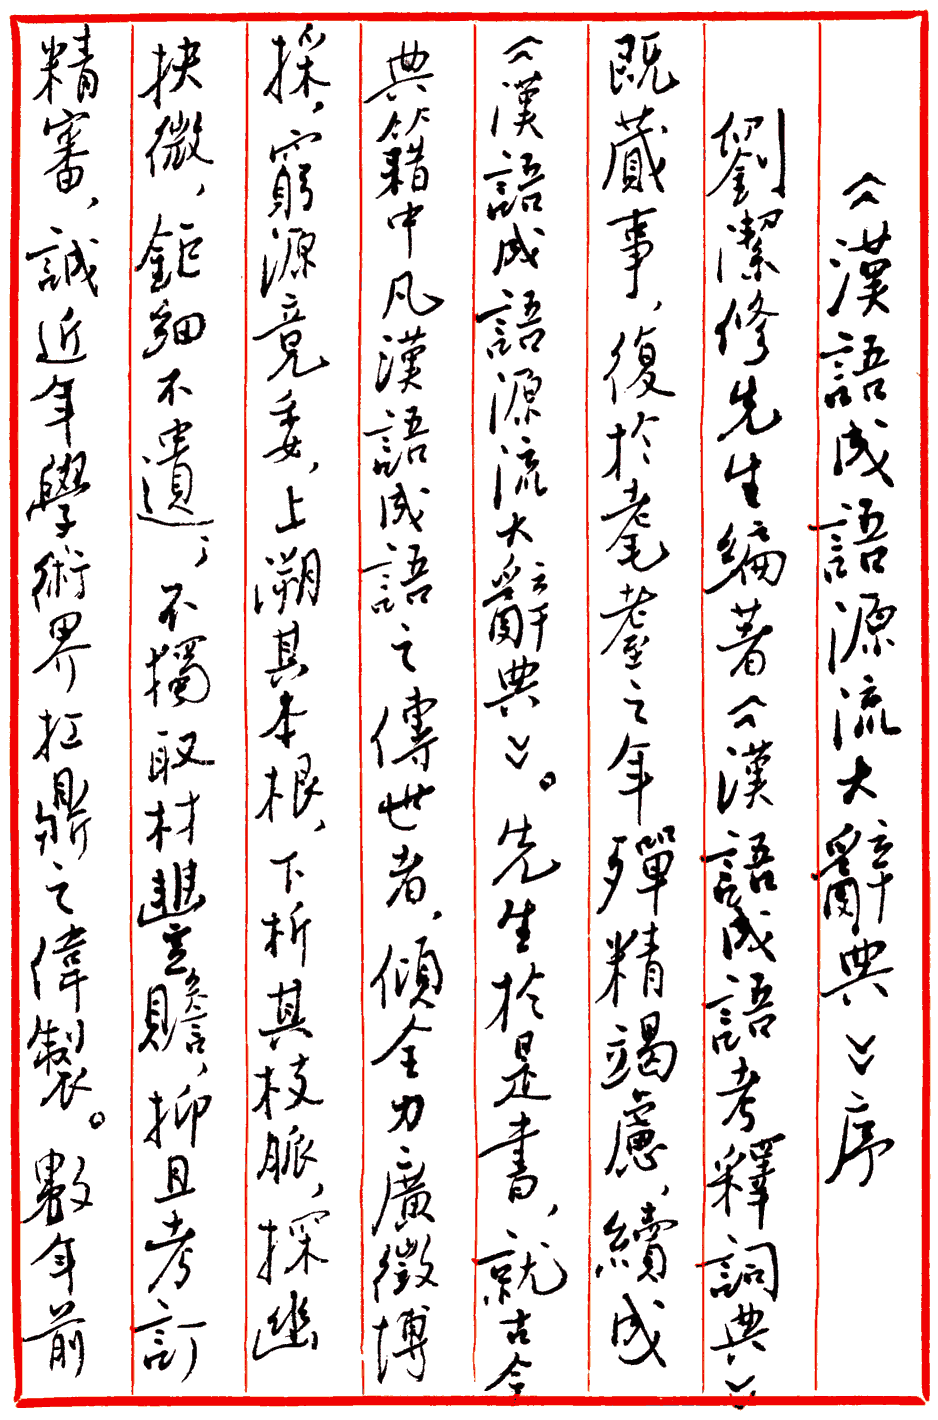 《漢語成語源流大辭典》序
劉潔修先生編著《漢語成語考釋詞典》
既蕆事，復於耄耋之年殫精竭慮，續成
《漢語成語源流大辭典》。先生於是書，就古今
典籍中凡漢語成語之傳世者，傾全力廣徵博
採，窮源竟委，上溯其本根，下析其枝脈，探幽
抉微，鉅細不遺；不獨取材豐贍，抑且考訂
精審，誠近年學術界扛鼎之偉製。數年前